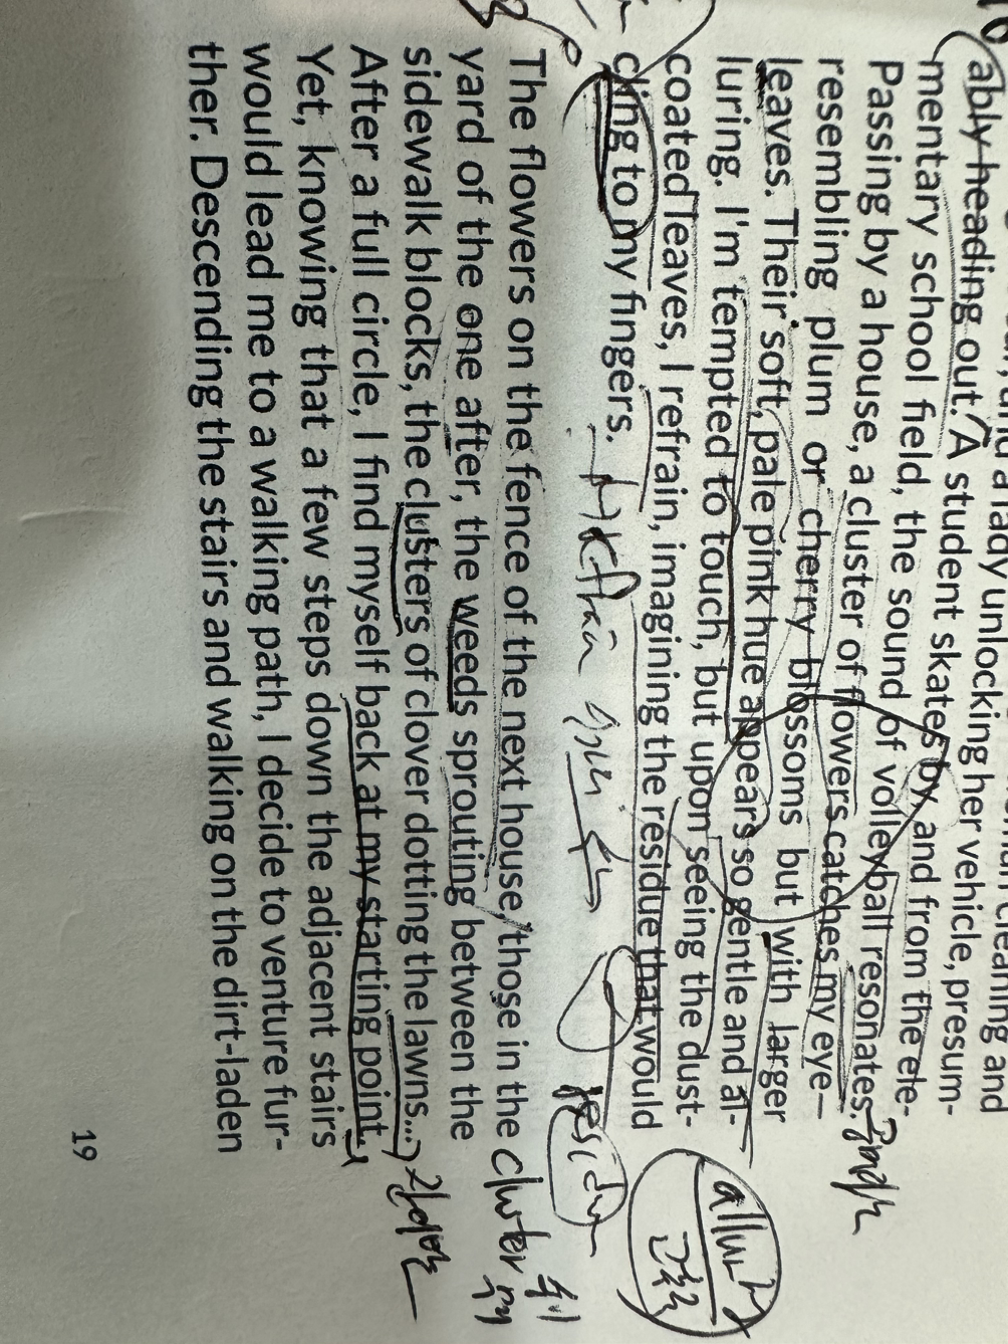 unlocking her vehicle, presum-
ably heading out. A student skates by, and from the ele-
mentary school field, the sound of volleyball resonates.
Passing by a house, a cluster of flowers catches my eye—
resembling plum or cherry blossoms but with larger
leaves. Their soft, pale pink hue appears so gentle and al-
luring. I'm tempted to touch, but upon seeing the dust-
coated leaves, I refrain, imagining the residue that would
cling to my fingers.
The flowers on the fence of the next house, those in the
yard of the one after, the weeds sprouting between the
sidewalk blocks, the clusters of clover dotting the lawns...
After a full circle, I find myself back at my starting point.
Yet, knowing that a few steps down the adjacent stairs
would lead me to a walking path, I decide to venture fur-
ther. Descending the stairs and walking on the dirt-laden
19
cluster